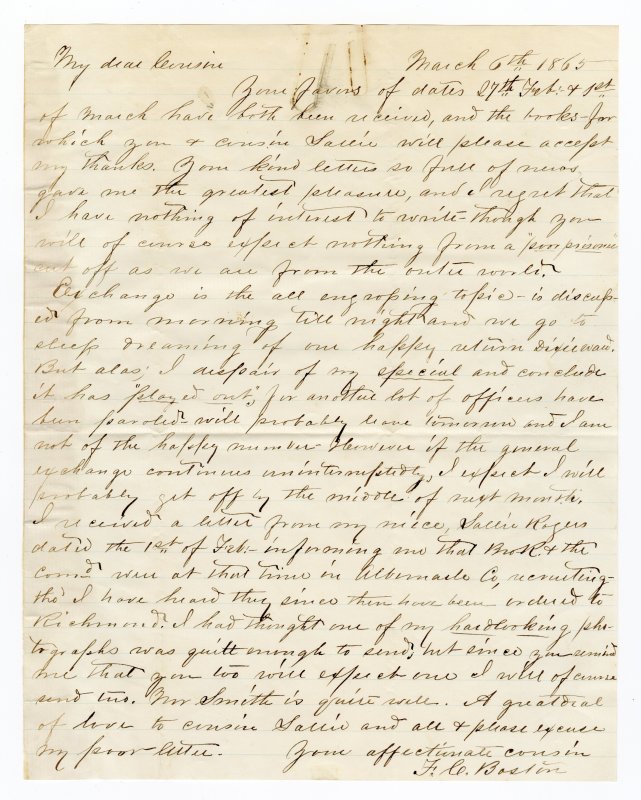 My dear Cousin March 6th 1865
Your favors of dates 27th Feb: & 1st
of March have both been received, and the books - for
which you & cousin Sallie will please accept
my thanks. Your kind letters so full of news,
gave me the greatest pleasure, and I regret that
I have nothing of interest to write - though you
will of course expect nothing from a "poor prisoner"
cut off as we are from the outer world.
Exchange is the all engrossing topic - is discuss-
ed from morning till night and we go to
sleep dreaming of our happy return Dixieward.
But alas; I despair of my special and conclude
it has "played out", for another lot of officers have
been paroled - will probably leave tomorrow and I am
not of the happy number - However if the general
exchange continues uninterruptedly, I expect I will
probably get off by the middle of next month.
I received a letter from my niece, Sallie Rogers
dated the 1st of Feb: - informing me that Bro R. & the
comd were at that time in Albemarle Co, recruiting -
tho' I have heard they since then have been ordered to
Richmond. I had thought one of my hardlooking pho-
tographs was quite enough to send, but since you remind
me that you too will expect one I will of course
send two. Mr Smith is quite well. A great deal
of love to cousin Sallie and all & please excuse
my poor letter. Your affectionate cousin
F. C. Boston